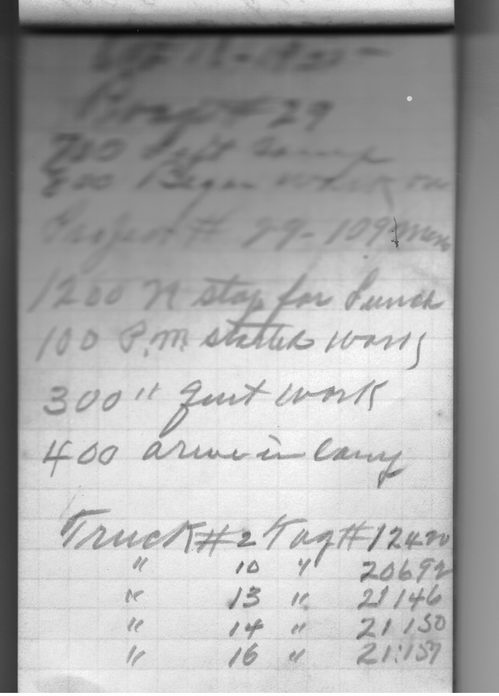 Project # 29
700 Left Camp
800 Began work on
Project # 29-109 men
1200 N stop for Lunch
100 P.M. started work
300 " quit work
400 arive in camp
Truck # 2 Tag # 12420
" 10 " 20692
" 13 " 21146
" 14 " 21150
" 16 " 21157